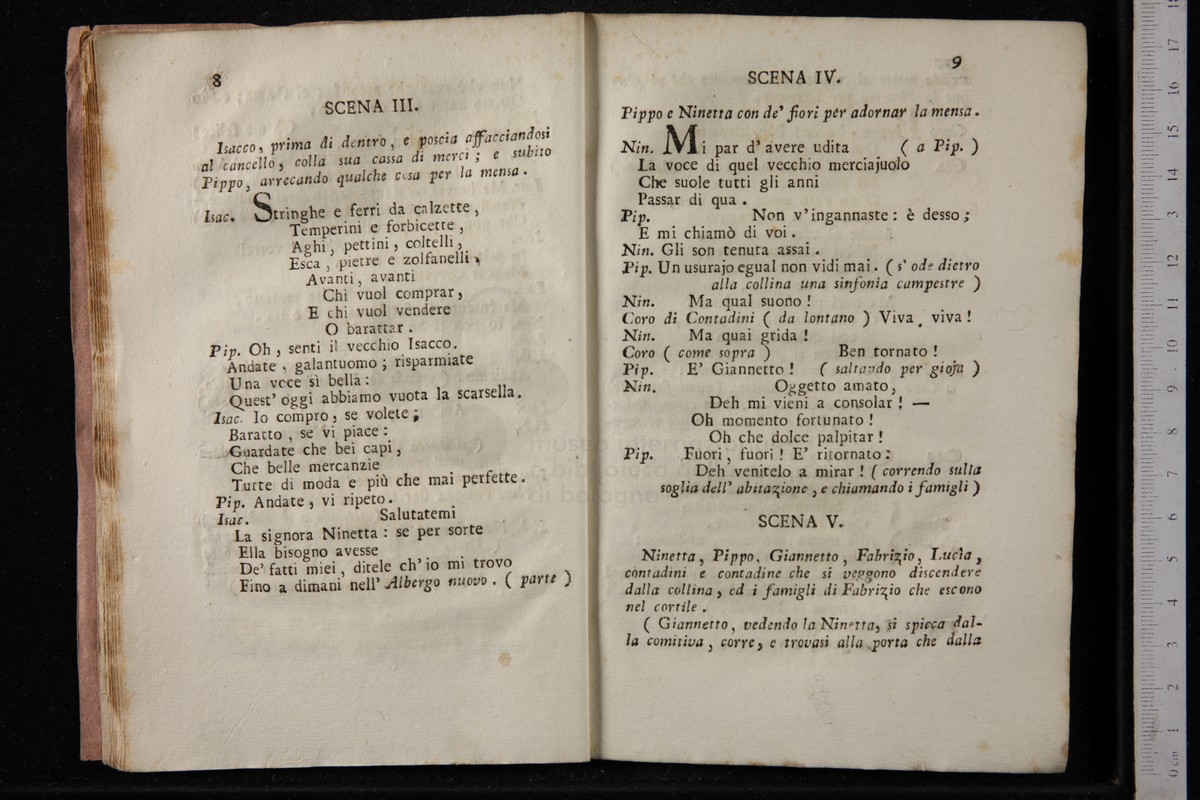 8
SCENA III.
Isacco, prima di dentro, e poscia affacciandosi
al cancello, colla sua cassa di merci; e subito
Pippo, arrecando qualche cosa per la mensa.
Isac. Stringhe e ferri da calzette,
Temperini e forbicette,
Aghi, pettini, coltelli,
Esca, pietre e zolfanelli,
Avanti, avanti
Chi vuol comprar,
E chi vuol vendere
O barattar.
Pip. Oh, senti il vecchio Isacco.
Andate, galantuomo; risparmiate
Una voce sì bella:
Quest' oggi abbiamo vuota la scarsella.
Isac. Io compro, se volete;
Baratto, se vi piace:
Guardate che bei capi,
Che belle mercanzie
Tutte di moda e più che mai perfette.
Pip. Andate, vi ripeto.
Isac. Salutatemi
La signora Ninetta: se per sorte
Ella bisogno avesse
De' fatti miei, ditele ch' io mi trovo
Fino a dimani nell' Albergo nuovo. ( parte )
9
SCENA IV.
Pippo e Ninetta con de' fiori per adornar la mensa.
Nin. Mi par d' avere udita ( a Pip. )
La voce di quel vecchio merciajuolo
Che suole tutti gli anni
Passar di qua.
Pip. Non v'ingannaste: è desso;
E mi chiamò di voi.
Nin. Gli son tenuta assai.
Pip. Un usurajo egual non vidi mai. ( s' ode dietro
alla collina una sinfonìa campestre )
Nin. Ma qual suono!
Coro di Contadini ( da lontano ) Viva, viva!
Nin. Ma quai grida!
Coro ( come sopra ) Ben tornato!
Pip. E' Giannetto! ( saltando per gioja )
Nin. Oggetto amato,
Deh mi vieni a consolar! —
Oh momento fortunato!
Oh che dolce palpitar!
Pip. Fuori, fuori! E' ritornato:
Deh venitelo a mirar! ( correndo sulla
soglia dell' abitazione, e chiamando i famigli )
SCENA V.
Ninetta, Pippo, Giannetto, Fabrizio, Lucìa,
contadini e contadine che si veggono discendere
dalla collina, ed i famigli di Fabrizio che escono
nel cortile.
( Giannetto, vedendo la Ninetta, si spicca dal-
la comitiva, corre, e trovasi alla porta che dalla